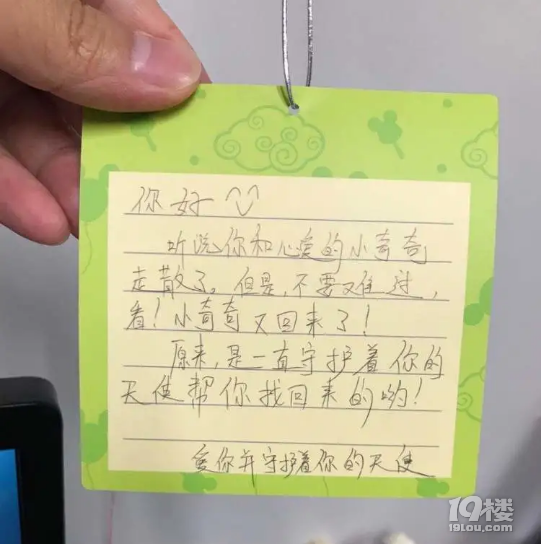 你好
听说你和心爱的小奇奇
走散了。但是,不要难过,
看!小奇奇又回来了!
原来,是一直守护着你的
天使帮你找回来的哟!
爱你并守护着你的天使
19楼
19lou.com